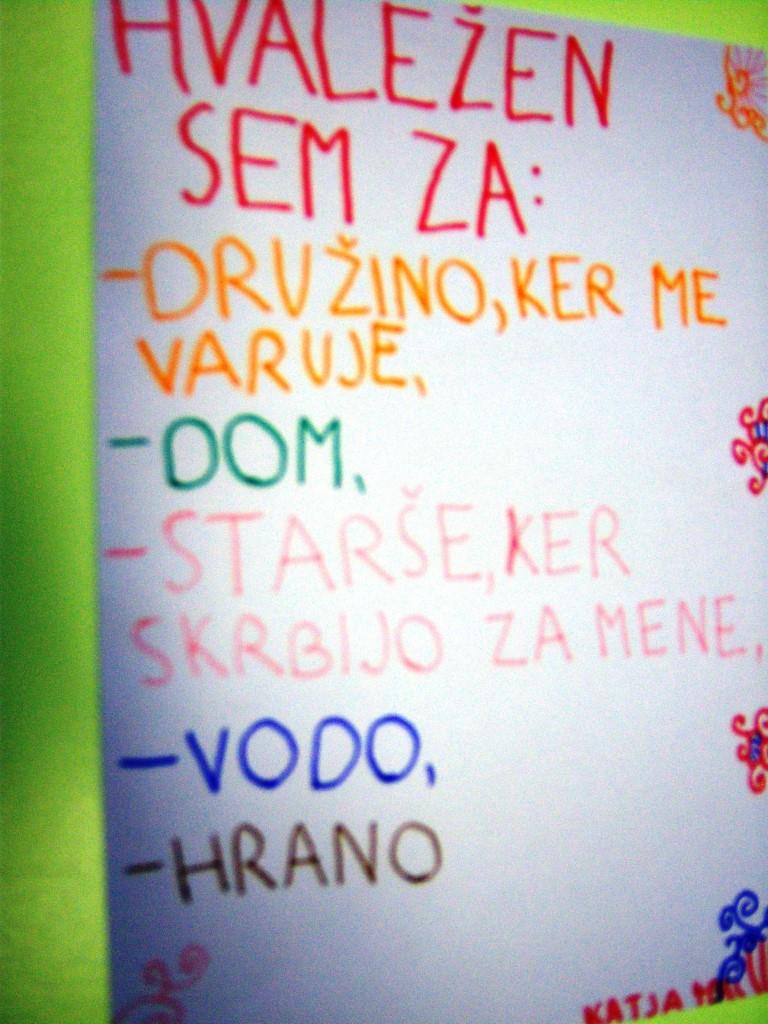 HVALEŽEN
SEM ZA:
-DRUŽINO, KER ME
VARUJE,
-DOM,
-STARŠE, KER
SKRBIJO ZA MENE,
-VODO,
-HRANO
KATJA